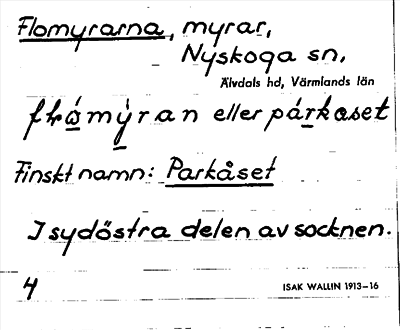 Flomyrarna, myrar,
Nyskoga sn,
Älvdals hd, Värmlands län
flåmýran eller párkaset
Finskt namn: Parkåset
I sydöstra delen av socknen.
4
ISAK WALLIN 1913–16